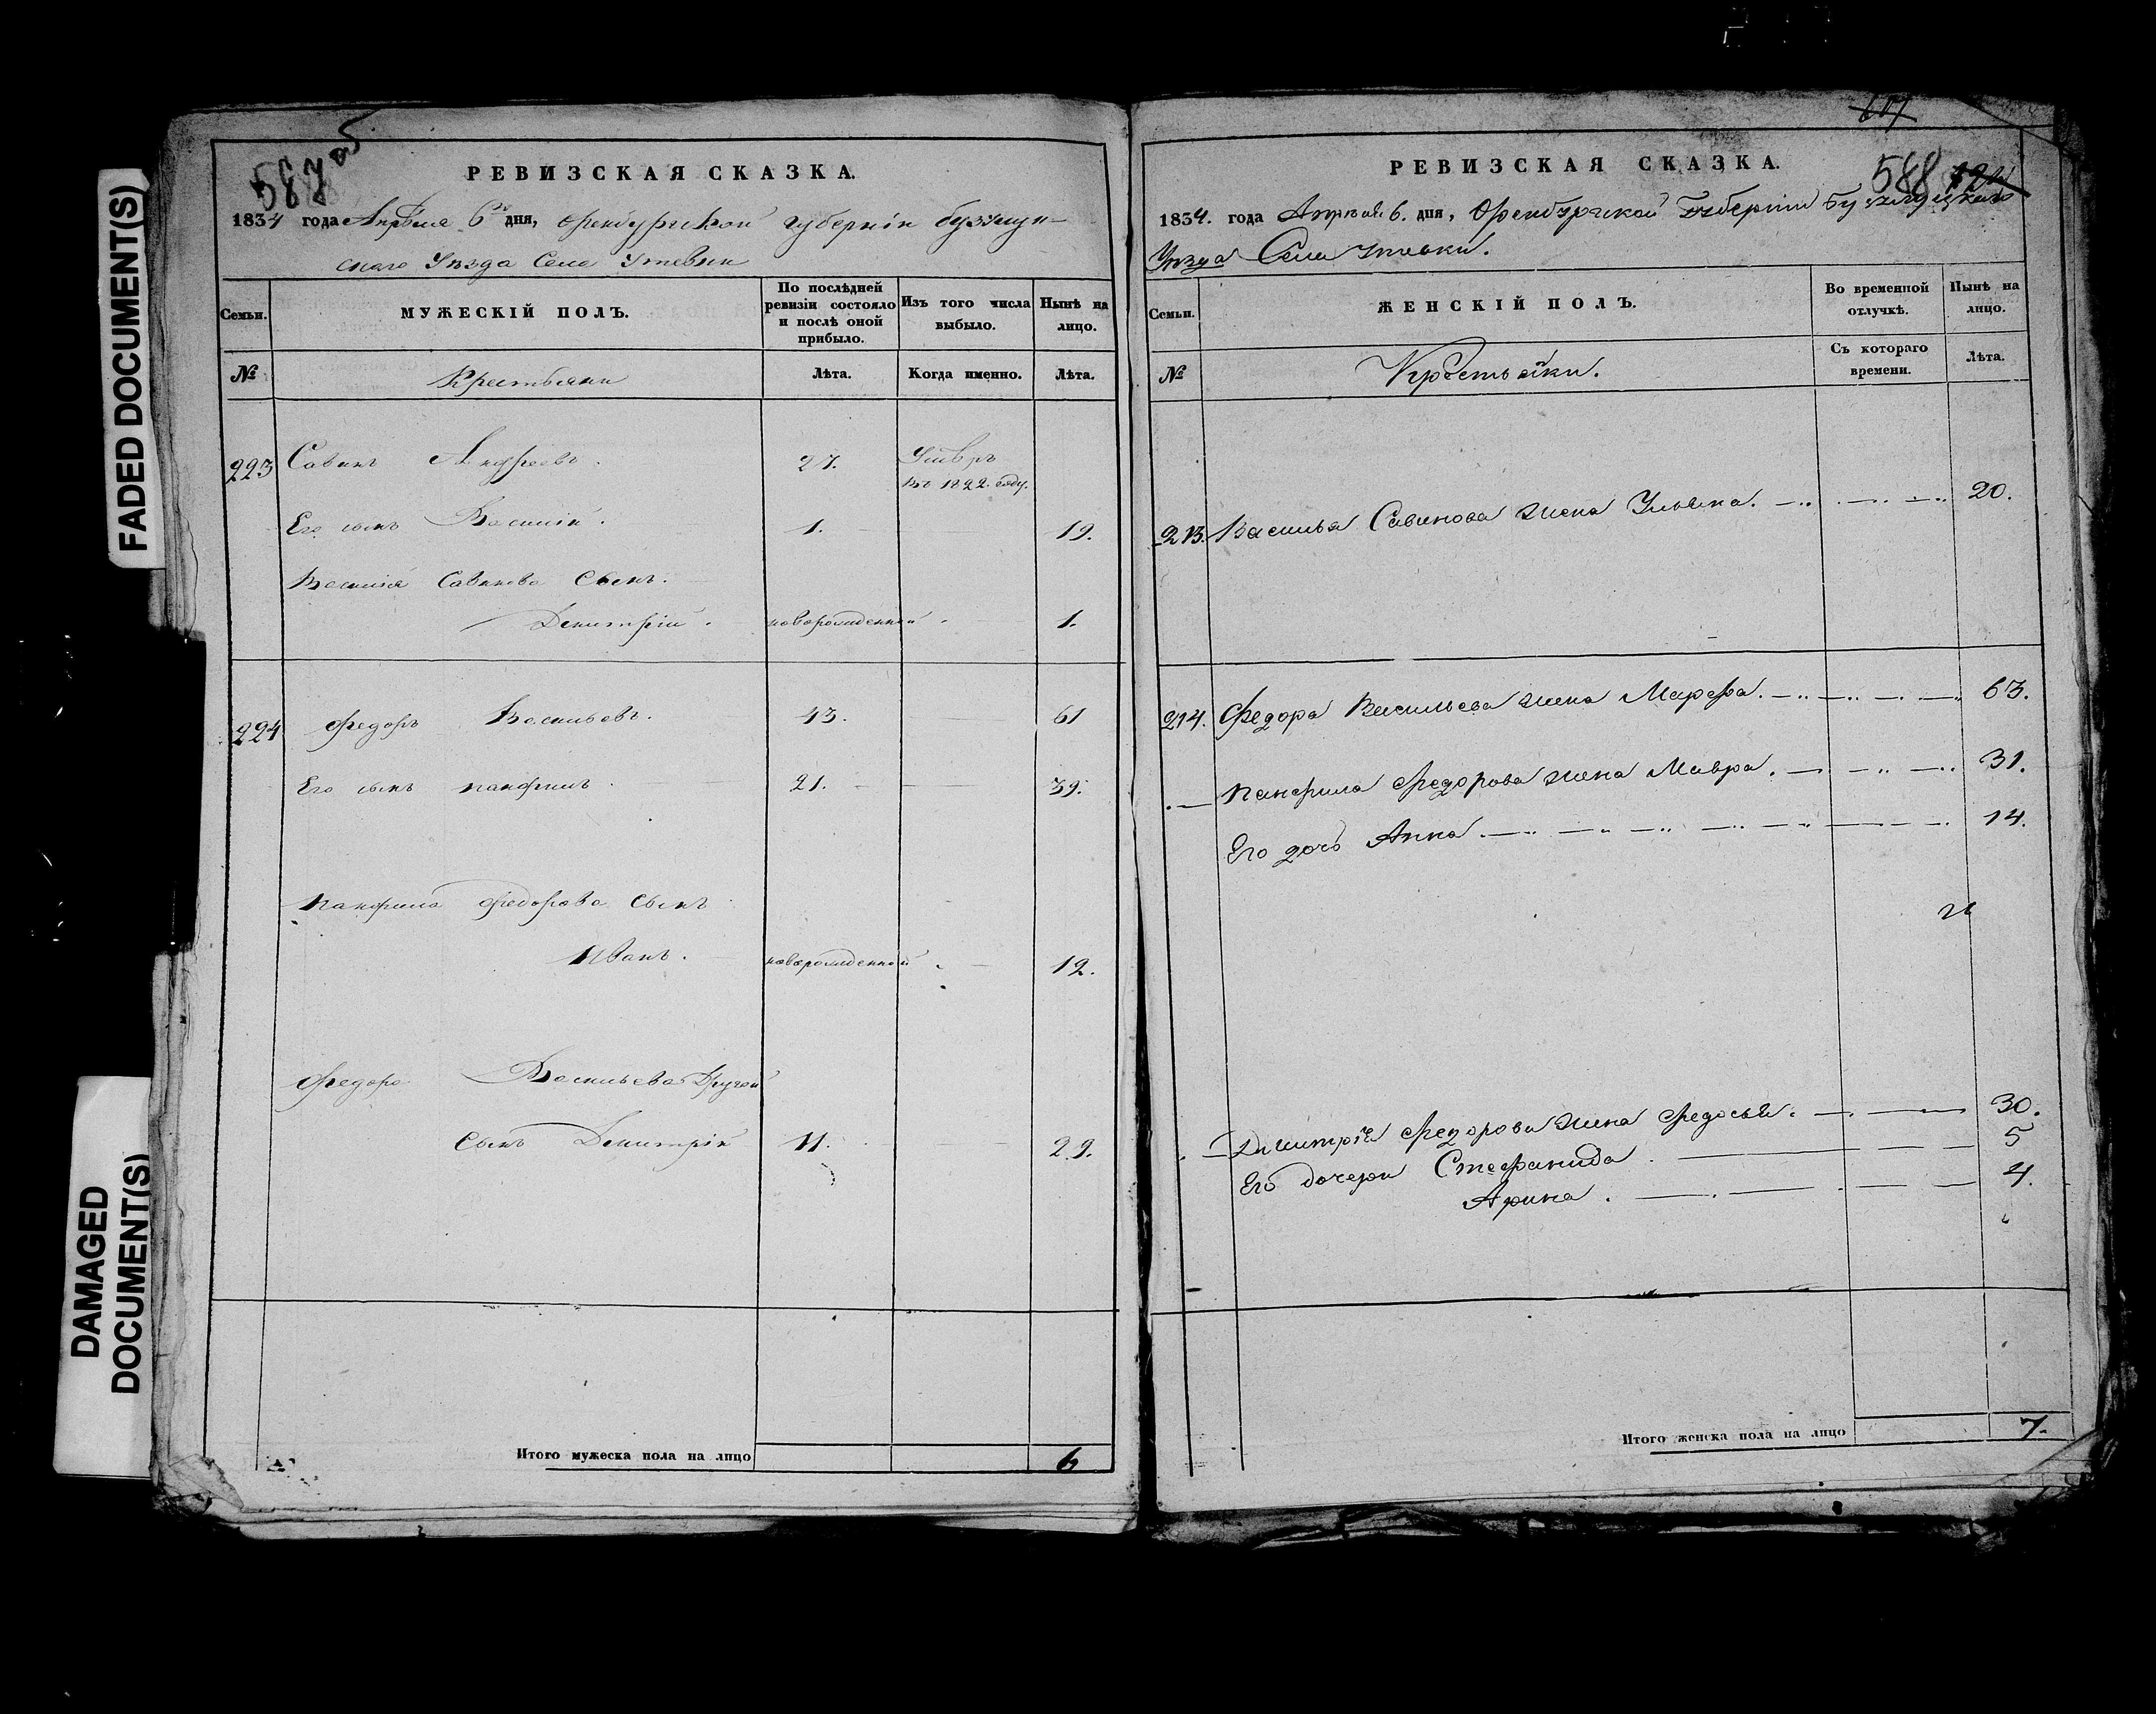 FADED DOCUMENT(S)
DAMAGED
DOCUMENT(S)
587 об
РЕВИЗСКАЯ СКАЗКА.
1834 года Апреля 6 дня, Оренбургской губернии Бузулук-
скаго Уѣзда Села Утевки
Семьи. МУЖЕСКІЙ ПОЛЪ. По послѣдней ревизіи состояло и послѣ оной прибыло. Изъ того числа выбыло. Нынѣ на лицо.
№ Крестьяни Лѣта. Когда именно. Лѣта.
223 Савинъ Андреевъ. 27. Умвръ
въ 1822. году.
Его сынъ Василій. 1. 19.
Василія Савинова сынъ.
Демитрій. новорожденной 1.
224 Федоръ Васильевъ. 43. 61
Его сынъ Панфилъ 21. 39.
Панфила Федорова сынъ
Иванъ. новорожденной 12.
Федора Васильева другой
сынъ Демитрій 11. 29.
Итого мужеска пола на лицо 6
607
РЕВИЗСКАЯ СКАЗКА. 588
1834. года Апреля 6. дня, Оренбургской Губерніи Бузулуцкаго
Уѣзда Села Утевки.
Семьи. ЖЕНСКІЙ ПОЛЪ. Во временной отлучкѣ. Нынѣ на лицо.
№ Крестьянки. Съ котораго времени. Лѣта.
213. Василья Савинова жена Ульяна. 20.
214. Федора Васильева жена Марфа. 63.
Панфила Федорова жена Мавра. 31.
Его дочь Анна 14.
Димитрія Федорова жена Федосья. 30.
Его дочери Стефанида 5
Арина. 4.
Итого женска пола на лицо 7.